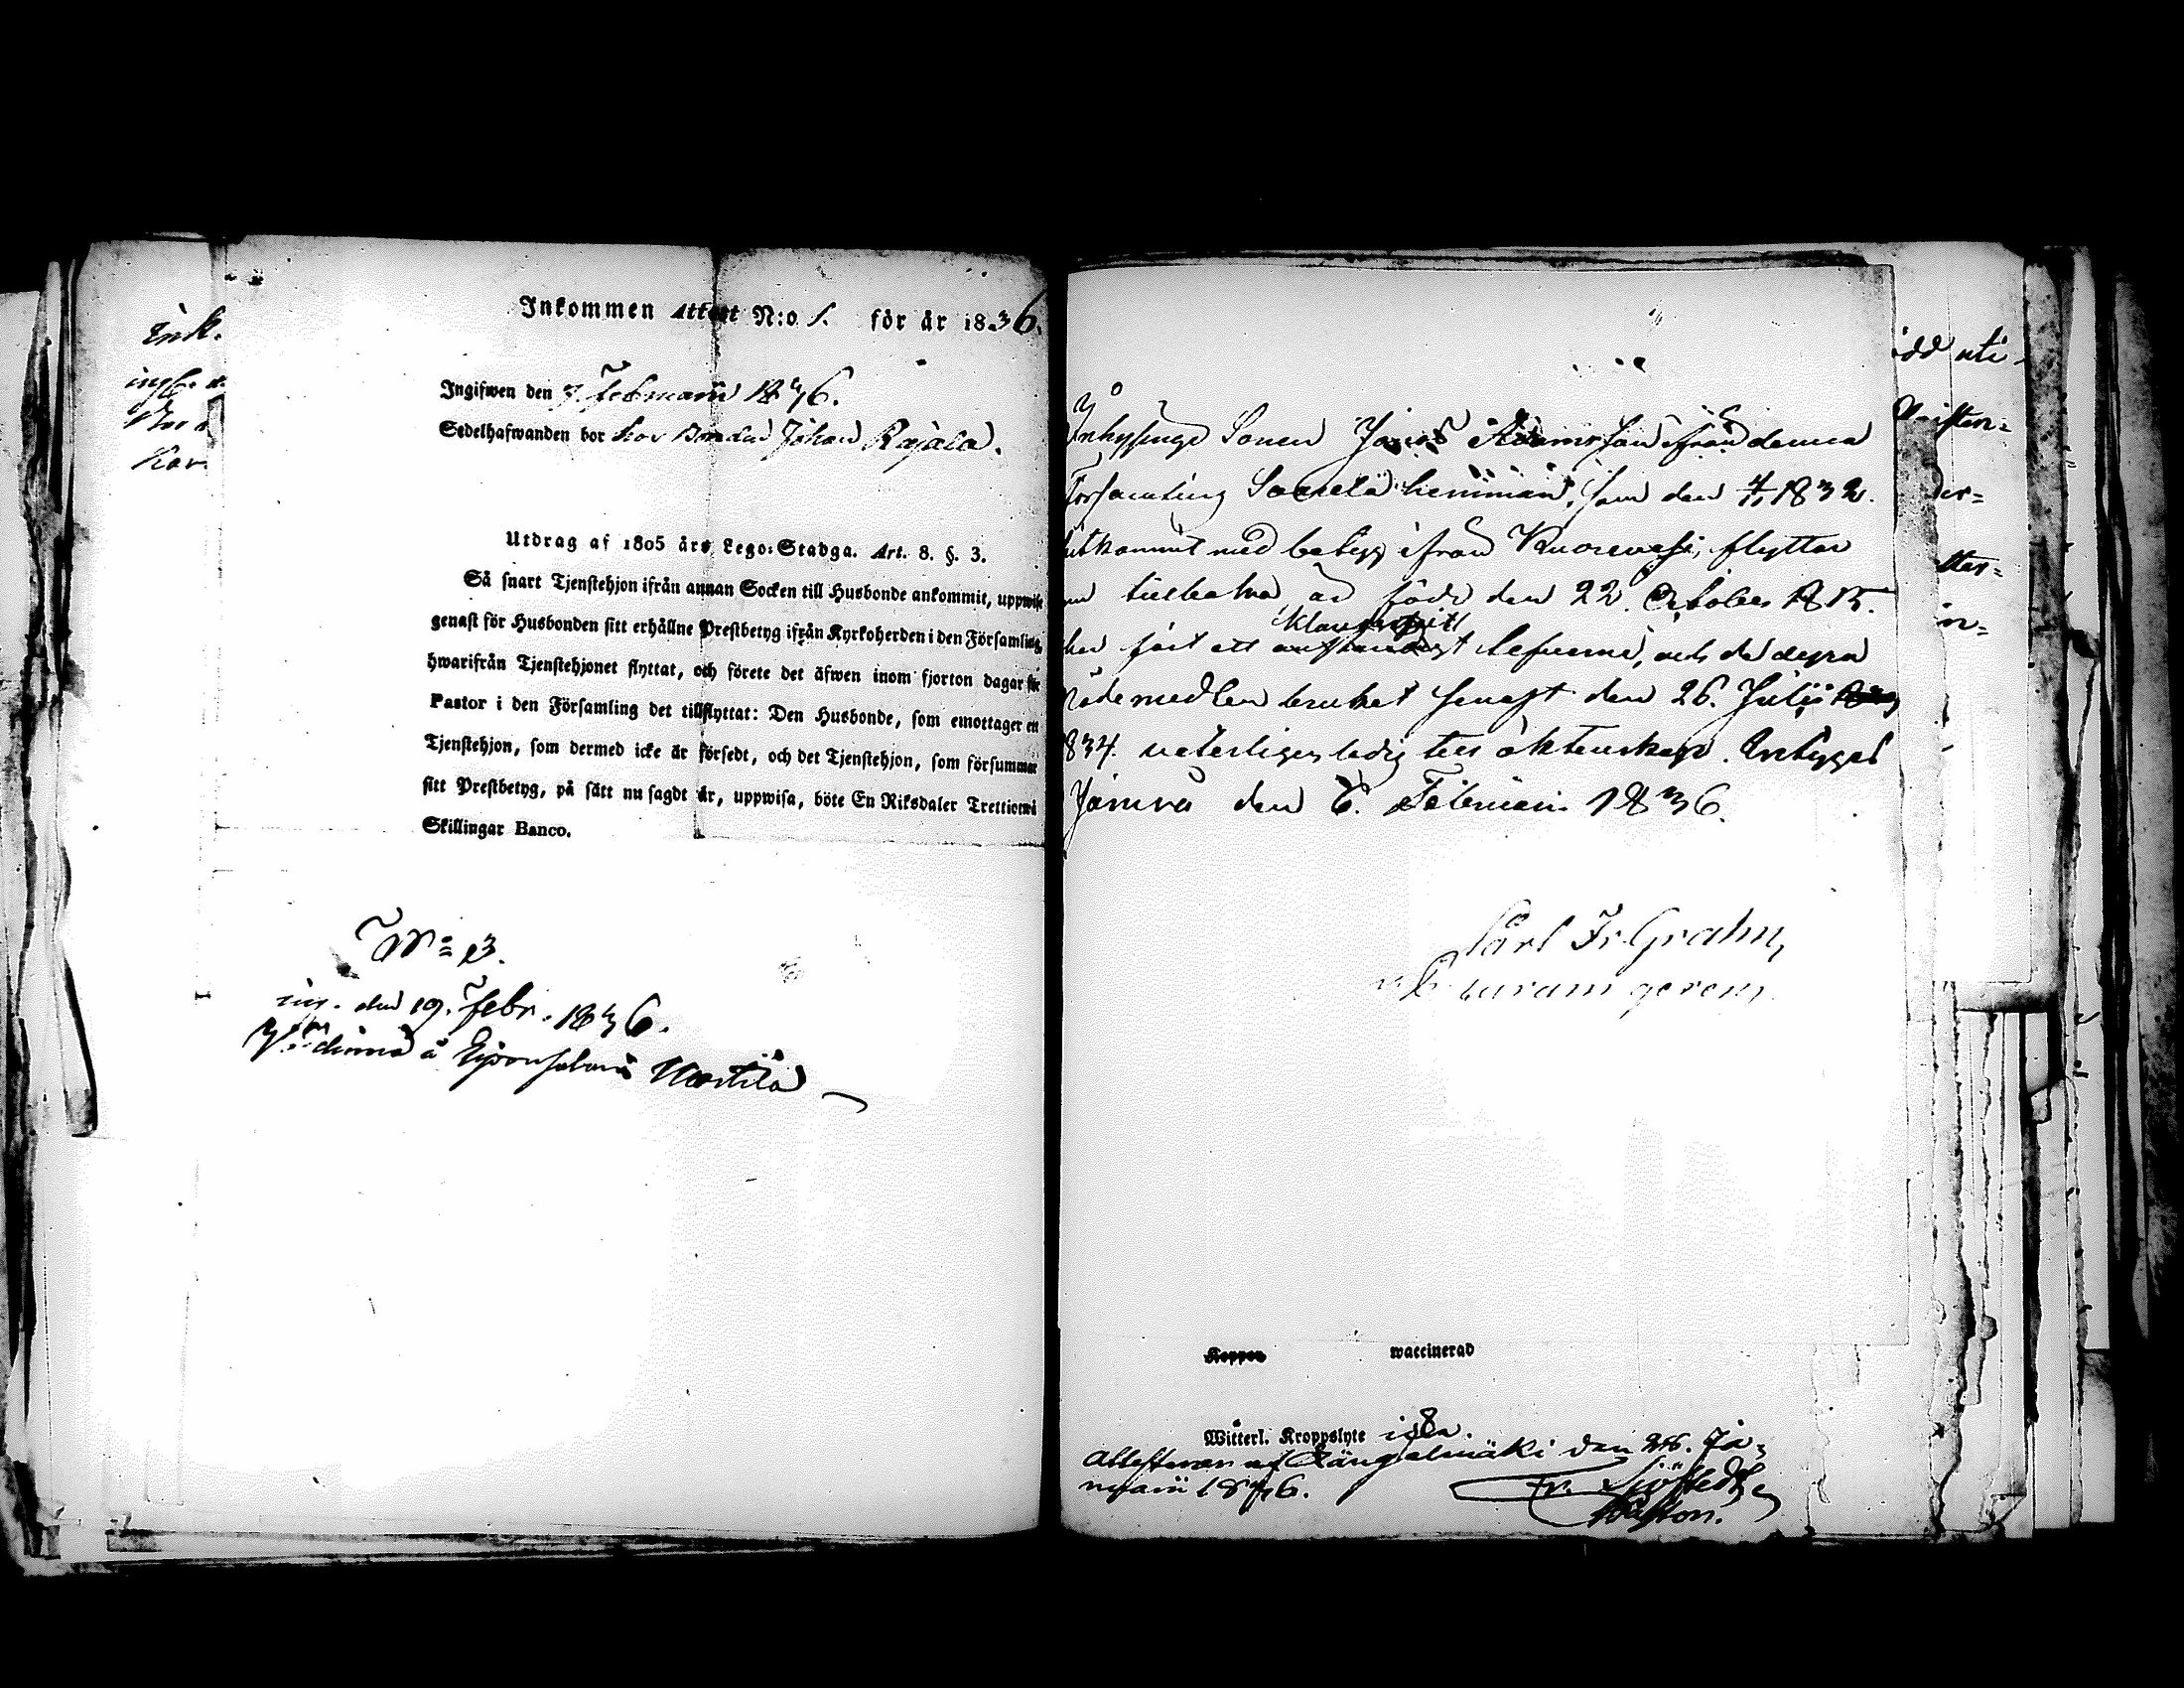 Ink.
Kar
Inkommen Attest N:o 1. för år 1836.
Ingifwen den 7. Februarii 1836.
Sedelhafwanden bor hos Bonden Johan Rajala.
Utdrag af 1805 års Lego-Stadga. Art. 8. §. 3.
Så snart Tjenstehjon ifrån annan Socken till Husbonde ankommit, uppwise
genast för Husbonden sitt erhållne Prestbetyg ifrån Kyrkoherden i den Församling,
hwarifrån Tjenstehjonet flyttat, och förete det äfwen inom fjorton dagar för
Pastor i den Församling det tillflyttat: Den Husbonde, som emottager en
Tjenstehjon, som dermed icke är försedt, och det Tjenstehjon, som försummar
sitt Prestbetyg, på sätt nu sagdt är, uppwisa, böte En Riksdaler Trettiotwå
Skillingar Banco.
N:o 13.
ing. den 19. Febr. 1836.
å Martila
Inhysinge Sonen Jonas Adamsson ifrån denna
Församling Saarela hemman, som den 4/1 1832.
utkommit med betyg ifrån Kuorevesi, flyttar
nu tillbaka, är född den 22. October 1815.
har fört ett klanderfritt lefverne, och de dyra
nådemedlen brukat senast den 26. Julii
1834. veterligen ledig till äktenskap. Enbetygas
Jämsä den 6. Februarii 1836.
Carl Fr. Grahn,
v. P. curam gerens.
Koppor waccinerad
Witterl. Kroppslyte
Attesteras af Längelmäki den 28. Ja-
nuarii 1836. Fr. Sjöstedt
Pastor.
ödd uti
Christen-
der-
tter-